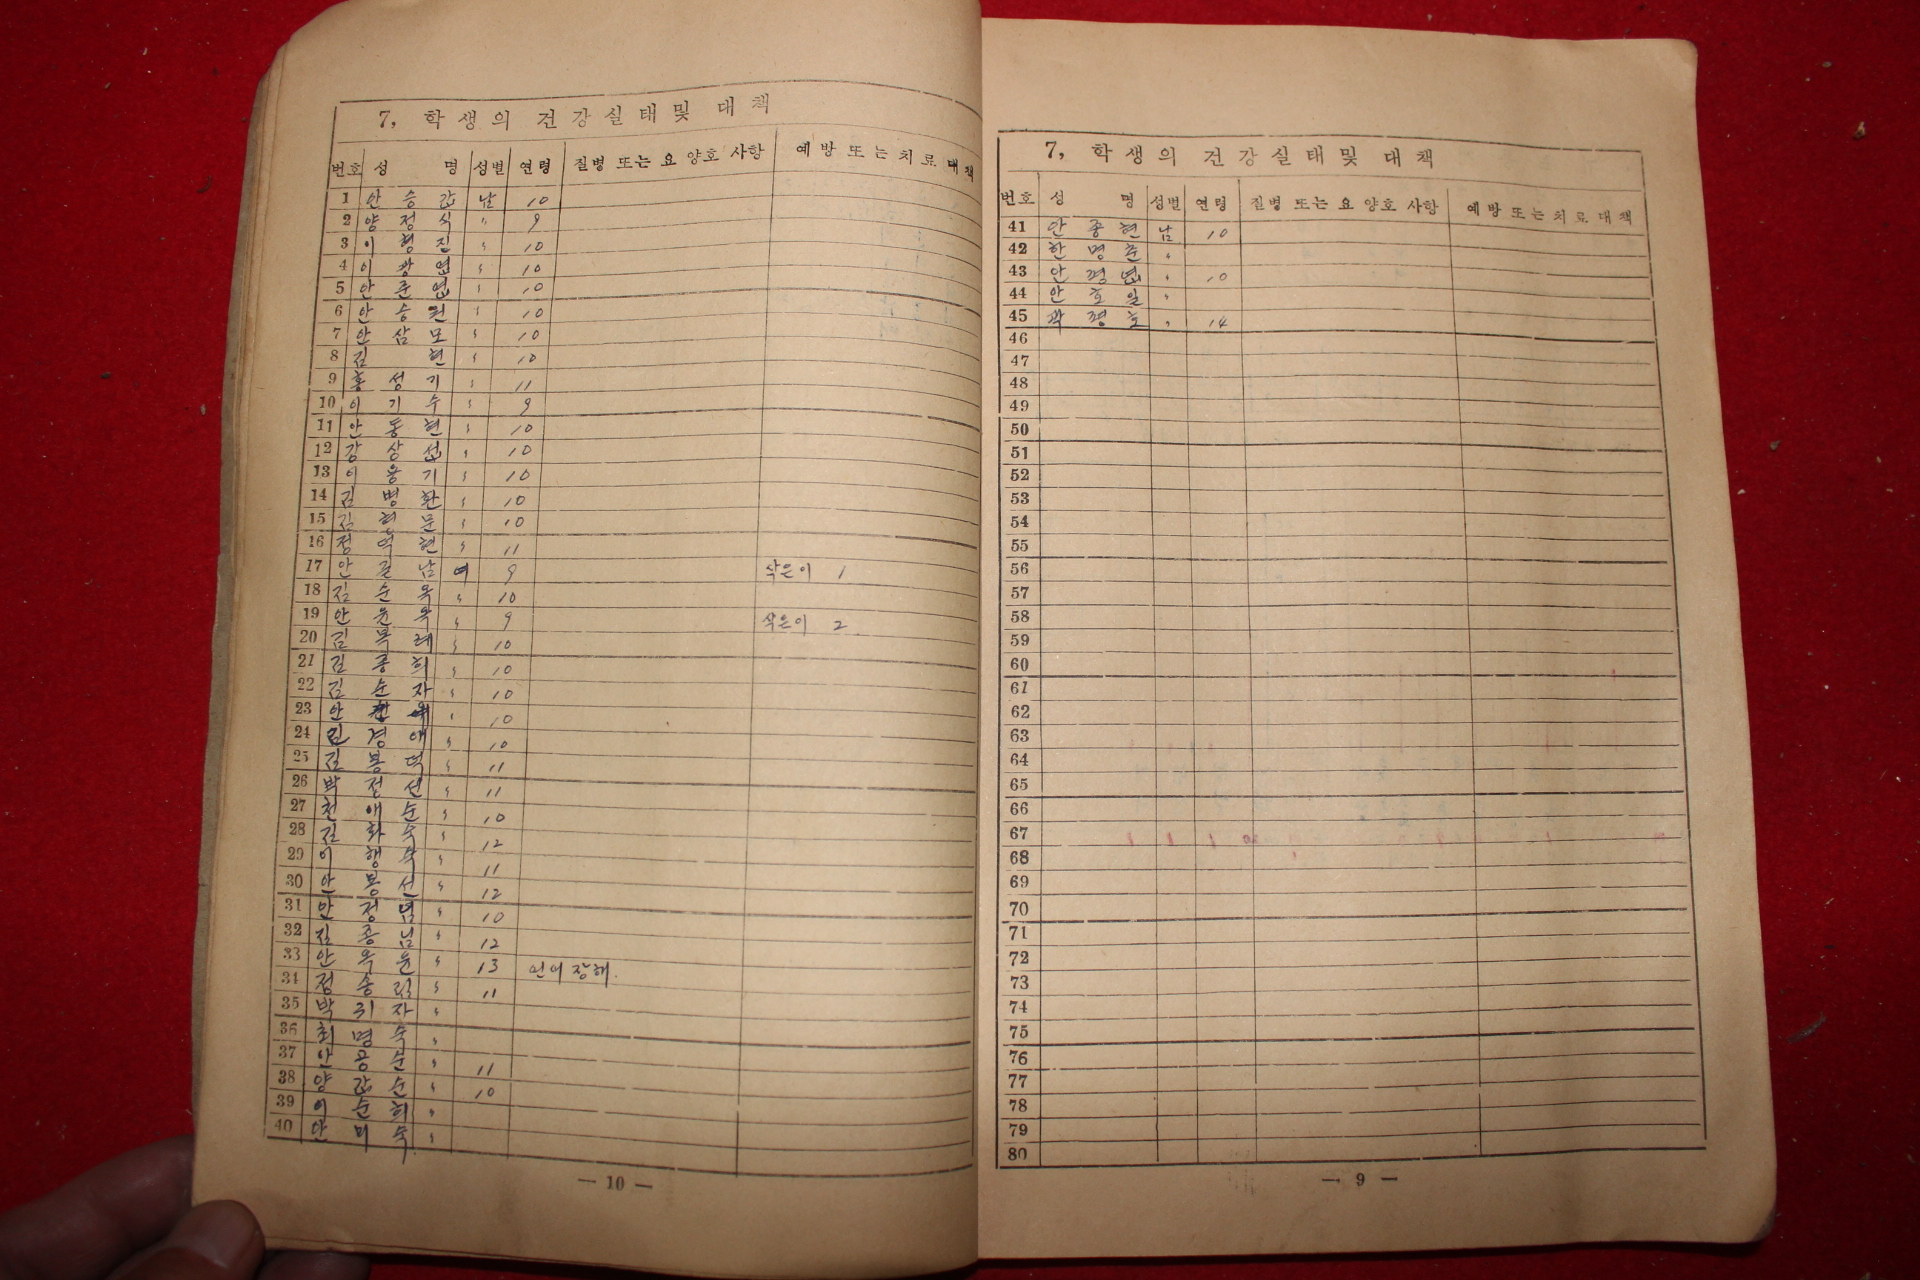 7, 학생의 건강실태및 대책
번호 성 명 성별 연령 질병 또는 요 양호 사항 예방 또는 치료 대책
1 안승갑 남 10
2 양정식 〃 9
3 이형진 〃 10
4 이광엽 〃 10
5 안준엽 〃 10
6 안승원 〃 10
7 안삼모 〃 10
8 김현 〃 10
9 홍성기 〃 11
10 이기수 〃 9
11 안동현 〃 10
12 강상섭 〃 10
13 이용기 〃 10
14 김병환 〃 10
15 김희문 〃 10
16 정덕현 〃 11
17 안길남 여 9 삭은이 1
18 김순옥 〃 10
19 안윤옥 〃 9 삭은이 2
20 김복례 〃 10
21 김종희 〃 10
22 김순자 〃 10
23 안 〃 10
24 김경애 〃 10
25 김봉덕 〃 11
26 박정선 〃 11
27 천애순 〃 10
28 김화숙 〃 12
29 이행숙 〃 11
30 안봉선 〃 12
31 안정 〃 10
32 김종님 〃 12
33 안옥윤 〃 13 언어장해.
34 정송림 〃 11
35 박리자 〃
36 최명숙 〃
37 안공순 〃 11
38 양갑순 〃 10
39 이순희 〃
40 안미숙 〃
— 10 —
7, 학생의 건강실태및 대책
번호 성 명 성별 연령 질병 또는 요 양호 사항 예방 또는 치료 대책
41 안종현 남 10
42 한명준 〃
43 안경엽 〃 10
44 안호일 〃
45 곽경호 〃 14
46
47
48
49
50
51
52
53
54
55
56
57
58
59
60
61
62
63
64
65
66
67
68
69
70
71
72
73
74
75
76
77
78
79
80
— 9 —